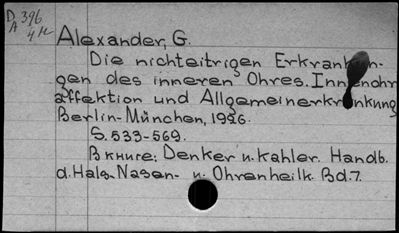 D 396
A 4/2
Alexander, G.
Die nichteitrigen Erkrankun-
gen des inneren Ohres. Innenohr
affektion und Allgemeinerkrankung
Berlin-München, 1926.
S. 533-569.
В книге: Denker u. Kahler. Handb.
d. Hals- Nasen- u. Ohrenheilk. Bd. 7.